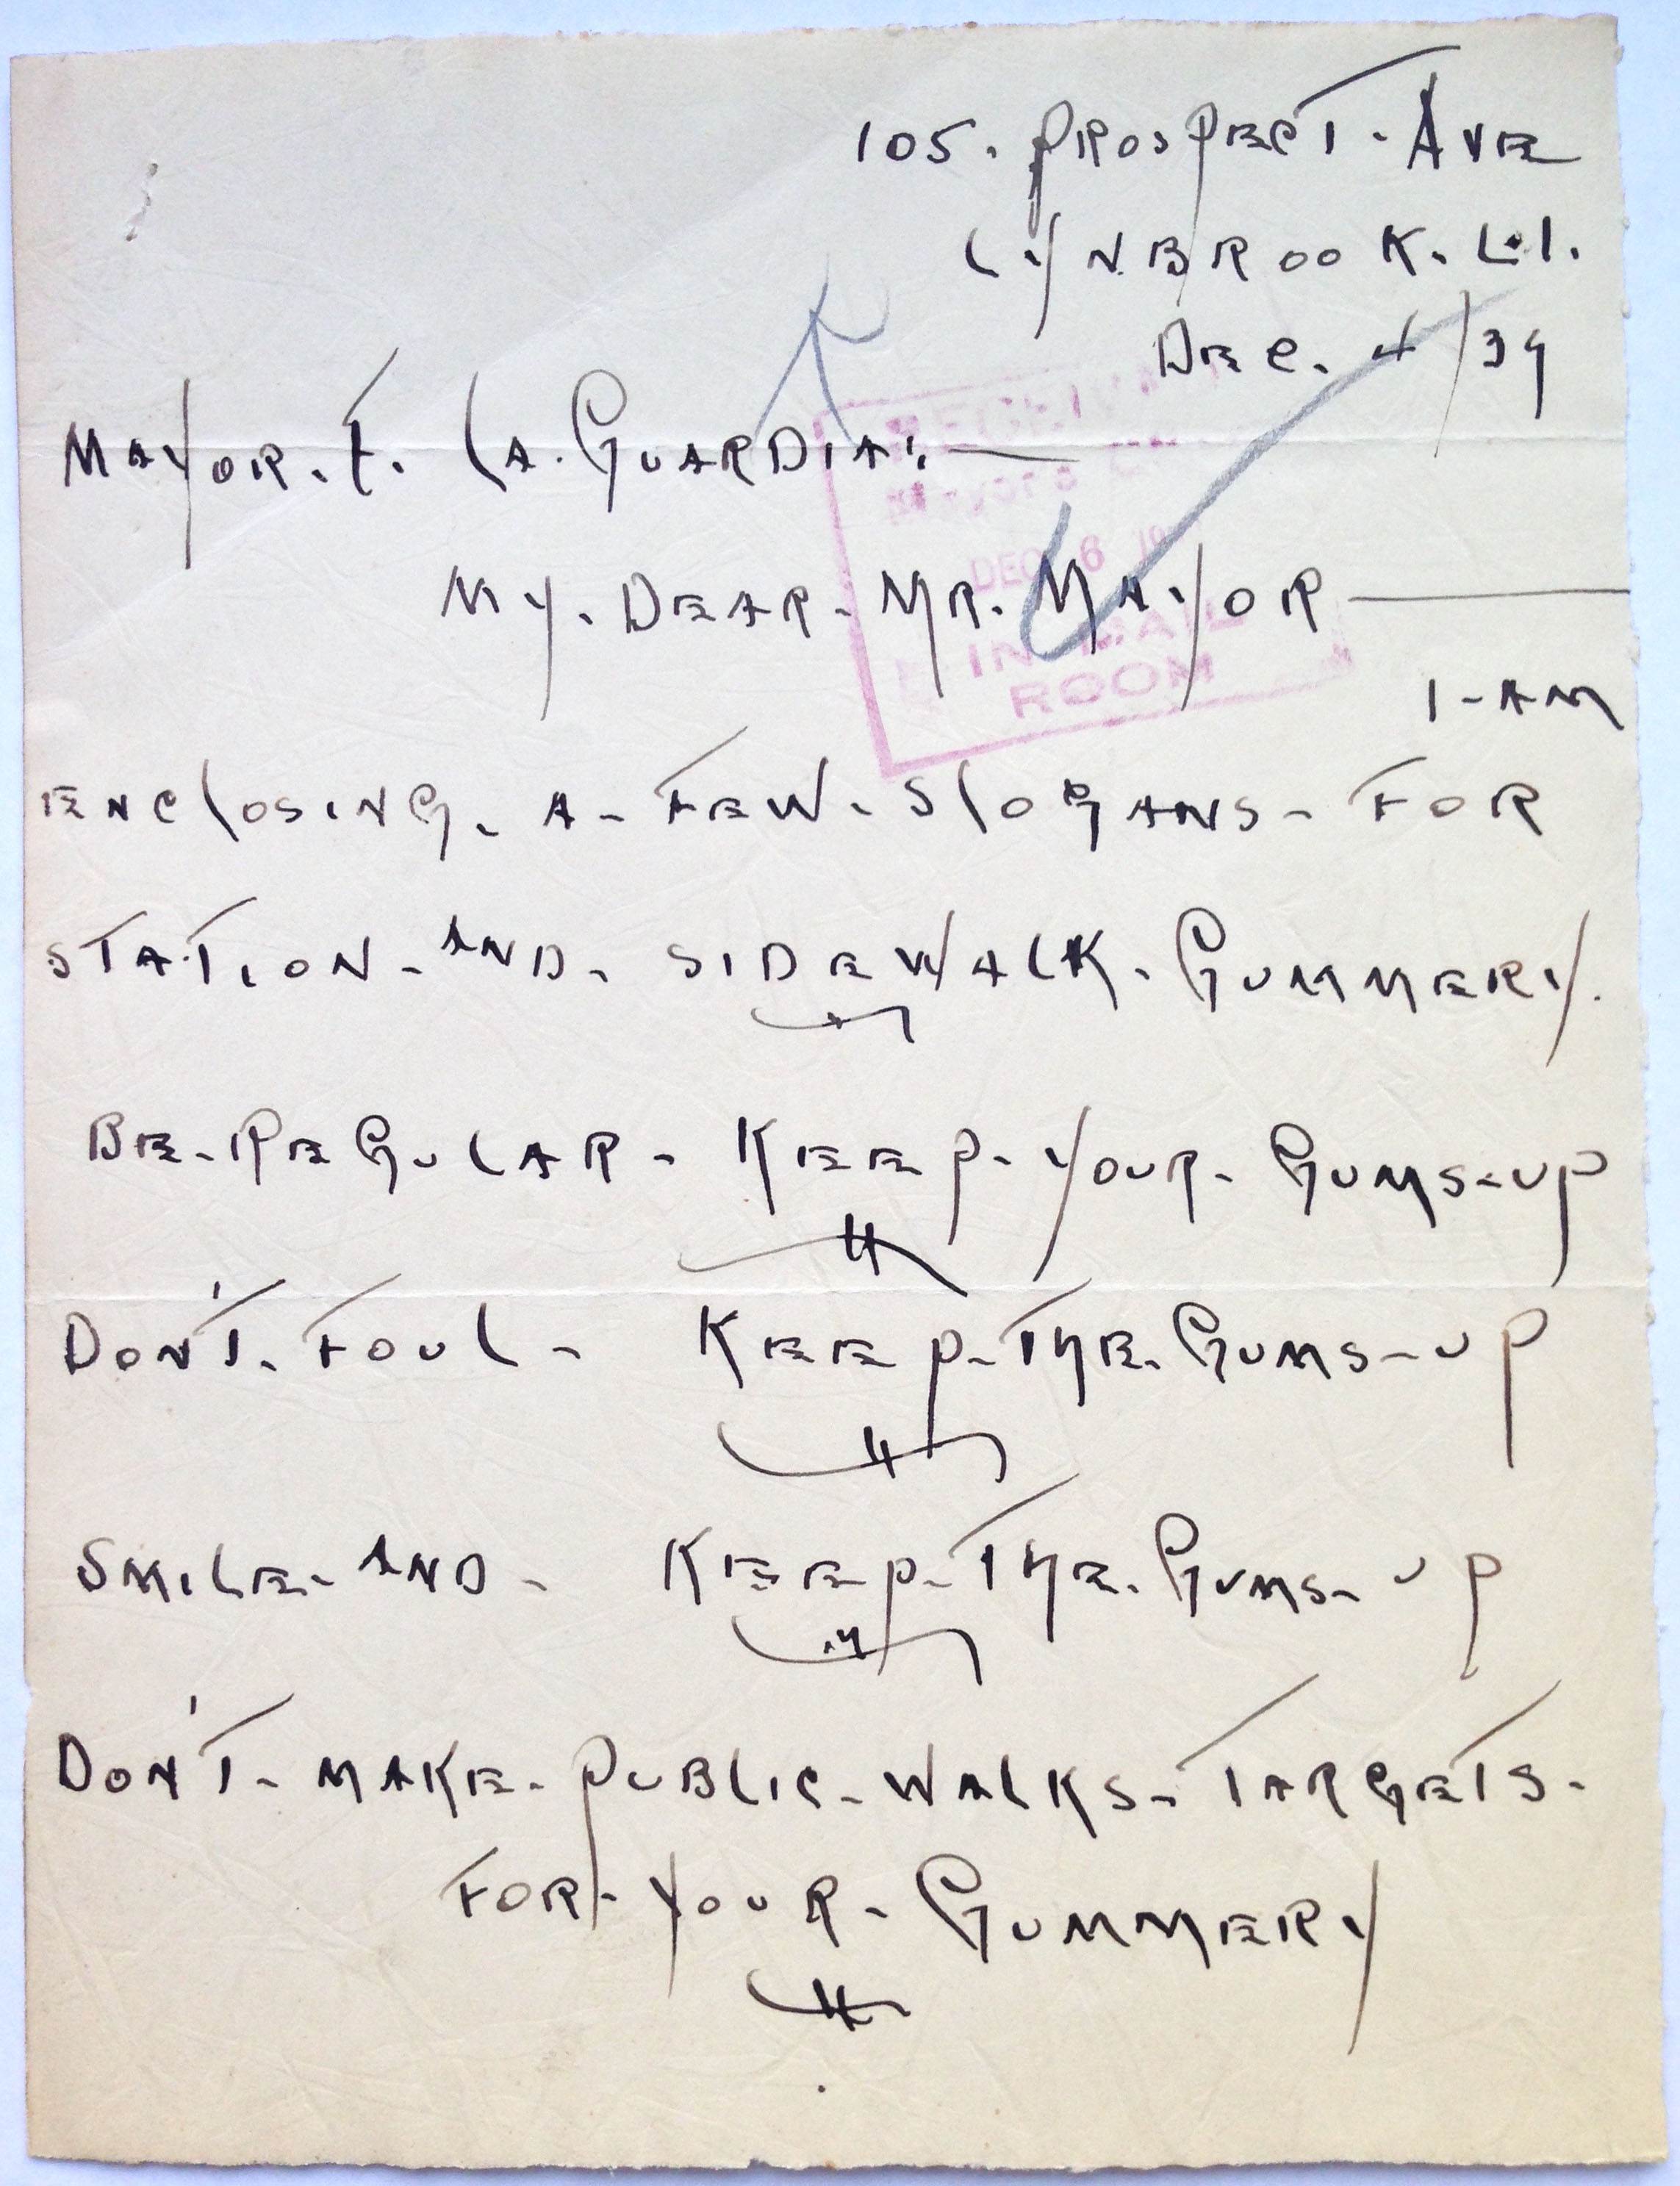 105. PROSPECT. AVE
LYNBROOK. L.I.
DEC. 4/39
MAYOR. F. LA. GUARDIA:—
MY. DEAR. MR. MAYOR—
DEC 6
IN MAIL
ROOM
I-AM
ENCLOSING. A-FEW. SLOGANS-FOR
STATION-AND-SIDEWALK. GUMMERY.
BE-REGULAR-KEEP-YOUR-GUMS-UP
DON'T-FOUL-KEEP-THE-GUMS-UP
SMILE-AND-KEEP-THE-GUMS-UP
DON'T-MAKE-PUBLIC-WALKS-TARGETS-
FOR-YOUR-GUMMERY